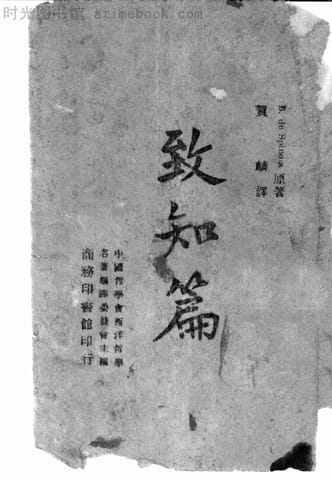 时光图书馆 - atimebook.com
B. de Spinoza 原著
賀麟譯
致知篇
中國哲學會西洋哲學
名著編譯委員會主編
商務印書館印行